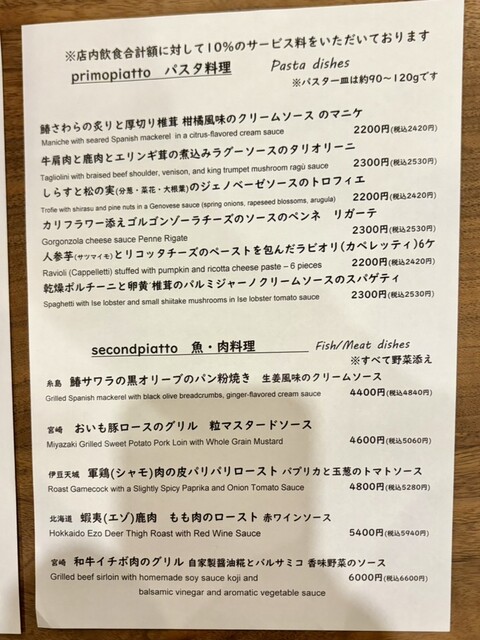 ※店内飲食合計額に対して10%のサービス料をいただいております
primopiatto パスタ料理 Pasta dishes
※パスタ一皿は約90～120gです
鰆さわらの炙りと厚切り椎茸 柑橘風味のクリームソース のマニケ
Maniche with seared Spanish mackerel in a citrus-flavored cream sauce
2200円(税込2420円)
牛肩肉と鹿肉とエリンギ茸の煮込みラグーソースのタリオリーニ
Tagliolini with braised beef shoulder, venison, and king trumpet mushroom ragù sauce
2300円(税込2530円)
しらすと松の実(分葱・菜花・大根葉)のジェノベーゼソースのトロフィエ
Trofie with shirasu and pine nuts in a Genovese sauce (spring onions, rapeseed blossoms, arugula)
2200円(税込2420円)
カリフラワー添えゴルゴンゾーラチーズのソースのペンネ リガーテ
Gorgonzola cheese sauce Penne Rigate
2300円(税込2530円)
人参芋(サツマイモ)とリコッタチーズのペーストを包んだラビオリ(カペレッティ)6ケ
Ravioli (Cappelletti) stuffed with pumpkin and ricotta cheese paste – 6 pieces
2200円(税込2420円)
乾燥ポルチーニと卵黄 椎茸のパルミジャーノクリームソースのスパゲティ
Spaghetti with Ise lobster and small shiitake mushrooms in Ise lobster tomato sauce
2300円(税込2530円)
secondpiatto 魚・肉料理 Fish/Meat dishes
※すべて野菜添え
糸島 鰆サワラの黒オリーブのパン粉焼き 生姜風味のクリームソース
Grilled Spanish mackerel with black olive breadcrumbs, ginger-flavored cream sauce
4400円(税込4840円)
宮崎 おいも豚ロースのグリル 粒マスタードソース
Miyazaki Grilled Sweet Potato Pork Loin with Whole Grain Mustard
4600円(税込5060円)
伊豆天城 軍鶏(シャモ)肉の皮パリパリロースト パプリカと玉葱のトマトソース
Roast Gamecock with a Slightly Spicy Paprika and Onion Tomato Sauce
4800円(税込5280円)
北海道 蝦夷(エゾ)鹿肉 もも肉のロースト 赤ワインソース
Hokkaido Ezo Deer Thigh Roast with Red Wine Sauce
5400円(税込5940円)
宮崎 和牛イチボ肉のグリル 自家製醤油糀とバルサミコ 香味野菜のソース
Grilled beef sirloin with homemade soy sauce koji and
6000円(税込6600円)
balsamic vinegar and aromatic vegetable sauce